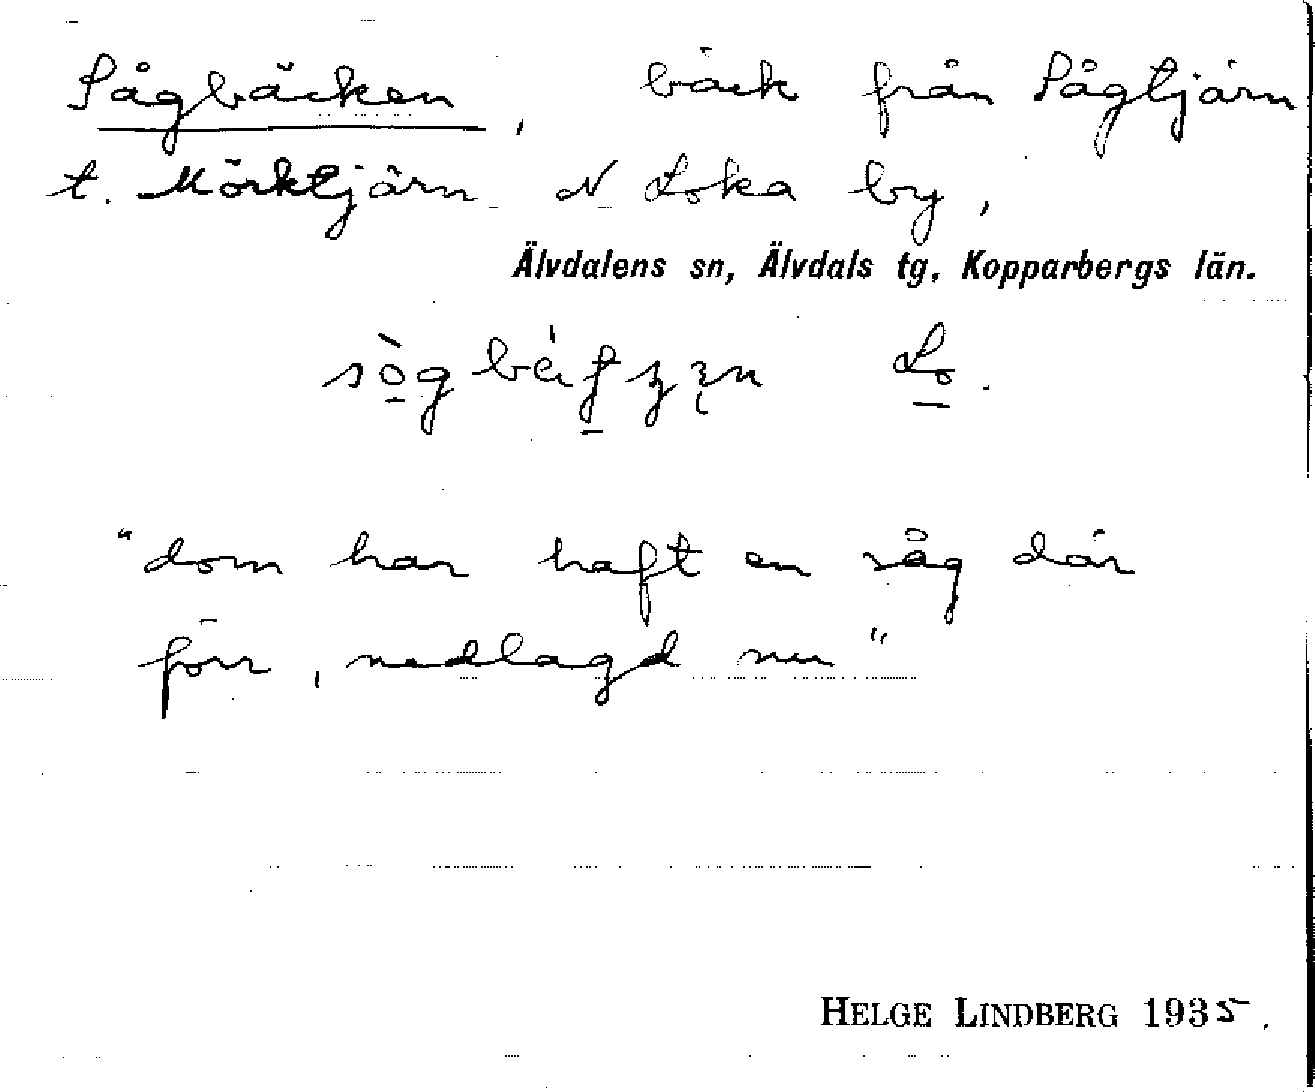 Sågbäcken, bäck från Sågtjärn
t. Mörktjärn N Loka by,
Älvdalens sn, Älvdals tg. Kopparbergs län.
Lo.
"dom har haft en såg där
förr, nedlagd nu"
HELGE LINDBERG 1935.